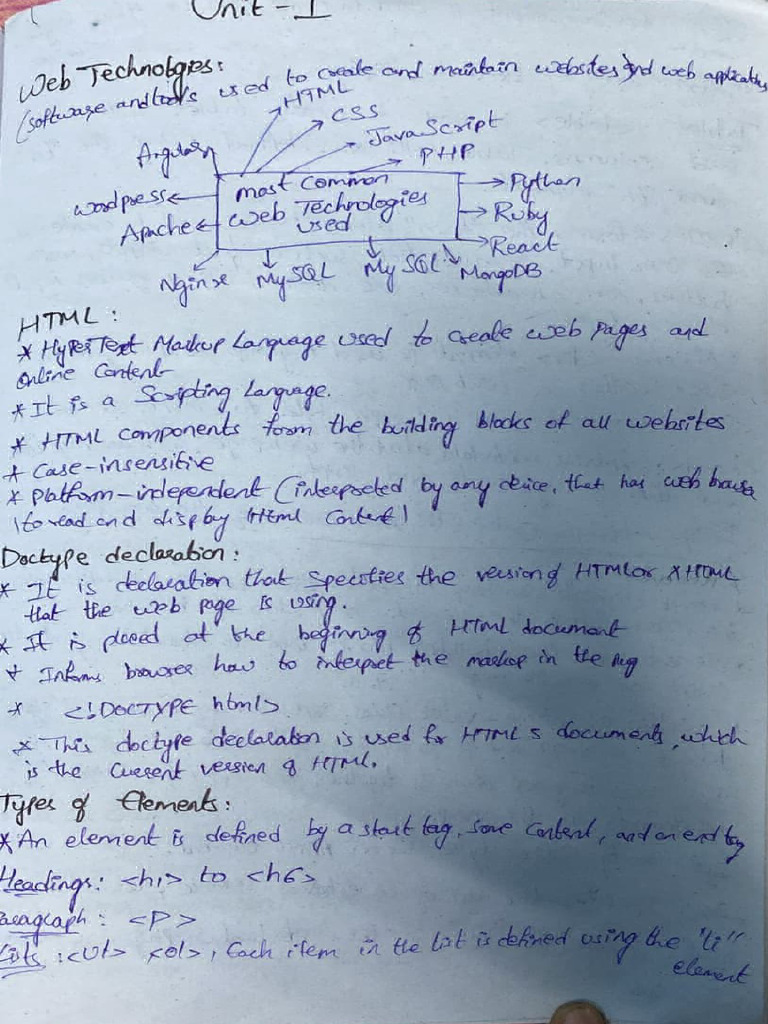 Unit - I
Web Technologies:
(software and tools used to create and maintain websites and web applications
HTML
CSS
JavaScript
PHP
Angular
wordpress
Apache
most common
web Technologies
used
Python
Ruby
React
Nginxe
MySQL
My SQL
MongoDB
HTML:
* HyperText Markup Language used to create web pages and
online Content
* It is a Scripting Language.
* HTML components form the building blocks of all websites
* Case-insensitive
* platform-independent (interpreted by any device, that has web browser
to read and display Html Content)
Doctype declaration:
* It is declaration that specifies the version of HTML or XHTML
that the web page is using.
* It is placed at the beginning of HTML document
* Informs browser how to interpret the markup in the
* <!DOCTYPE html>
* This doctype declaration is used for HTML 5 documents, which
is the current version of HTML.
Types of Elements:
* An element is defined by a start tag, some content, and an end tag
Headings: <h1> to <h6>
Paragraph: <P>
Lists: <ul> <ol>, Each item in the list is defined using the "li"
element